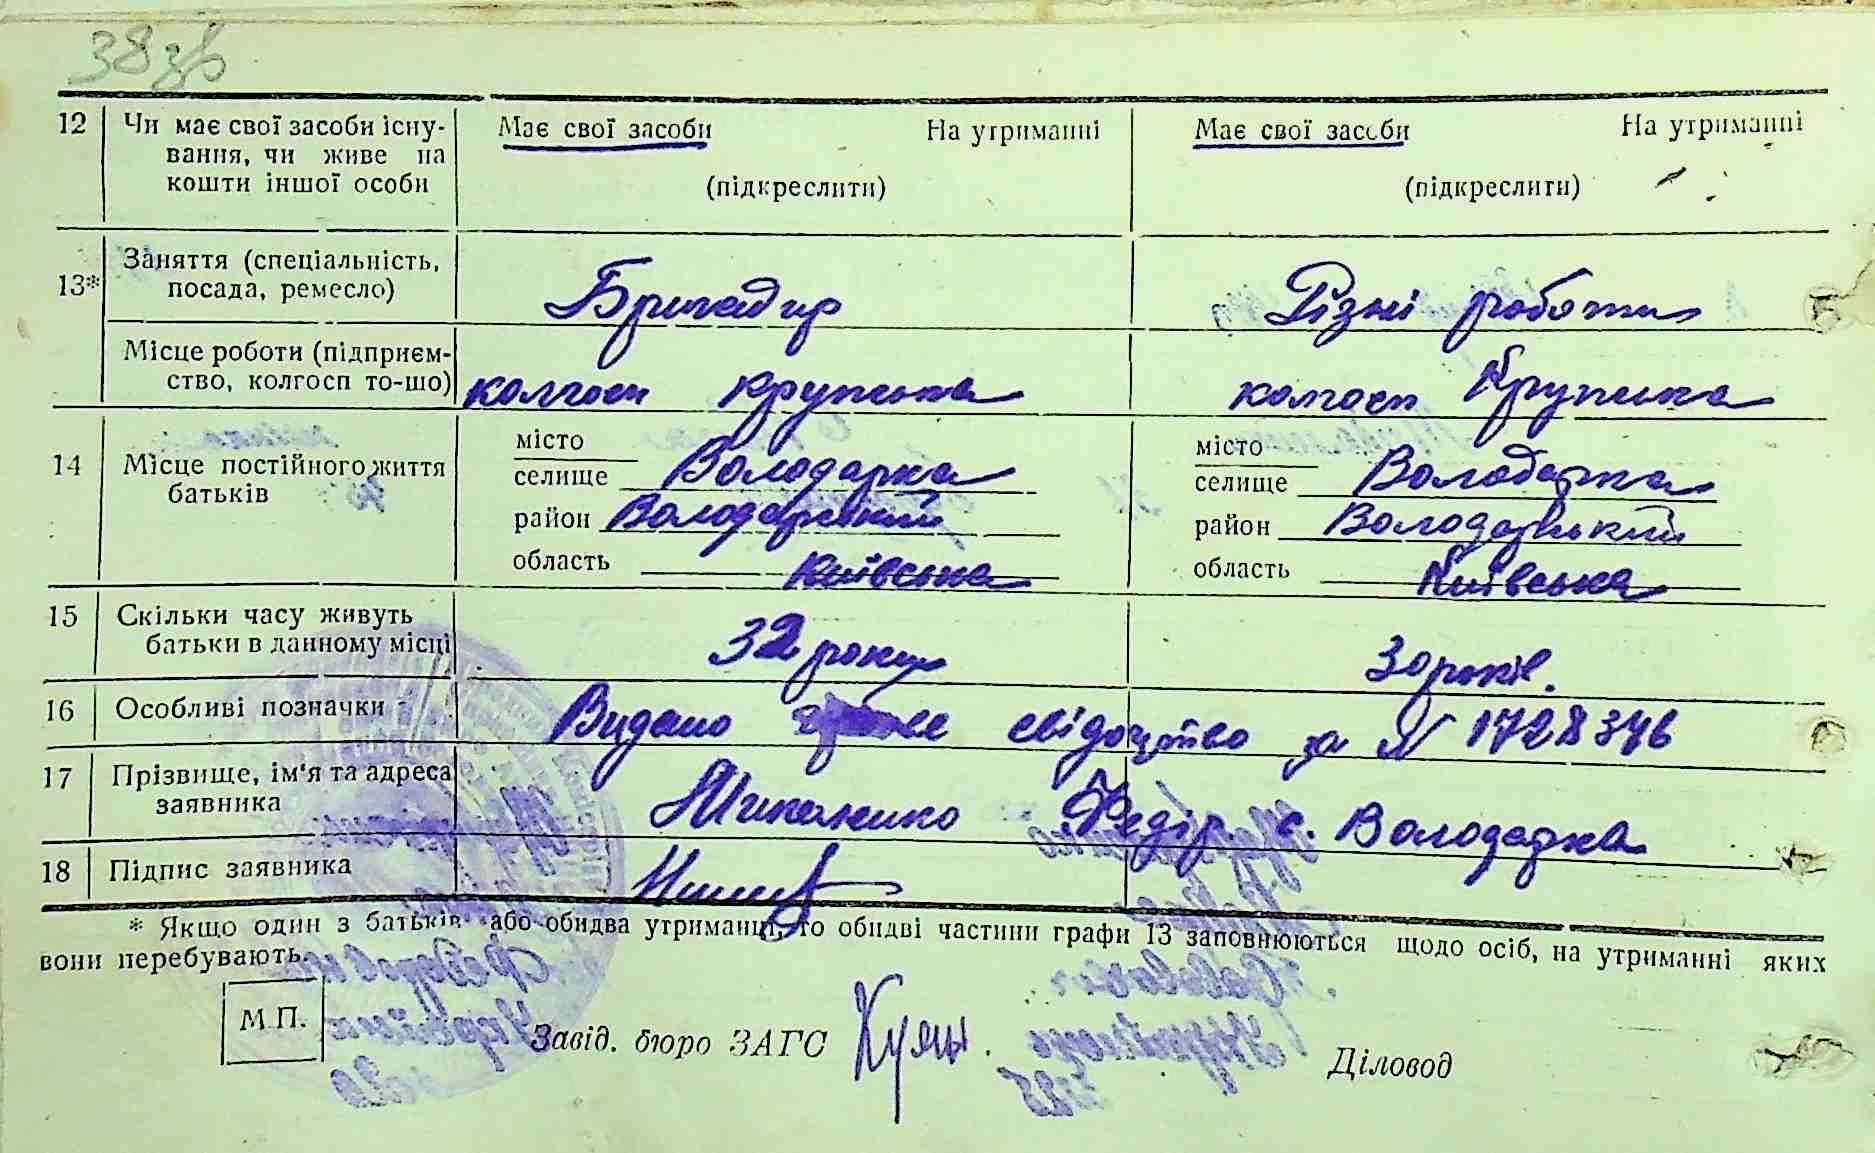 38 зв
12 Чи має свої засоби існу- Має свої засоби На утриманні Має свої засоби На утриманні
вання, чи живе на
кошти іншої особи (підкреслити) (підкреслити)
13* Заняття (спеціальність,
посада, ремесло) Бригадир Різні роботи
Місце роботи (підприєм-
ство, колгосп то-шо) колгосп Крупська колгосп Крупська
14 Місце постійного життя місто місто
батьків селище Володарка селище Володарка
район Володарський район Володарський
область Київська область Київська
15 Скільки часу живуть
батьки в данному місці 32 роки 30 років.
16 Особливі позначки Видано свідоцтво за N 1728346
17 Прізвище, ім'я та адреса
заявника Миколенко Федір с. Володарка
18 Підпис заявника
* Якщо один з батьків або обидва утриманці, то обидві частини графи 13 заповнюються щодо осіб, на утриманні яких
вони перебувають.
М.П.
Завід. бюро ЗАГС Діловод